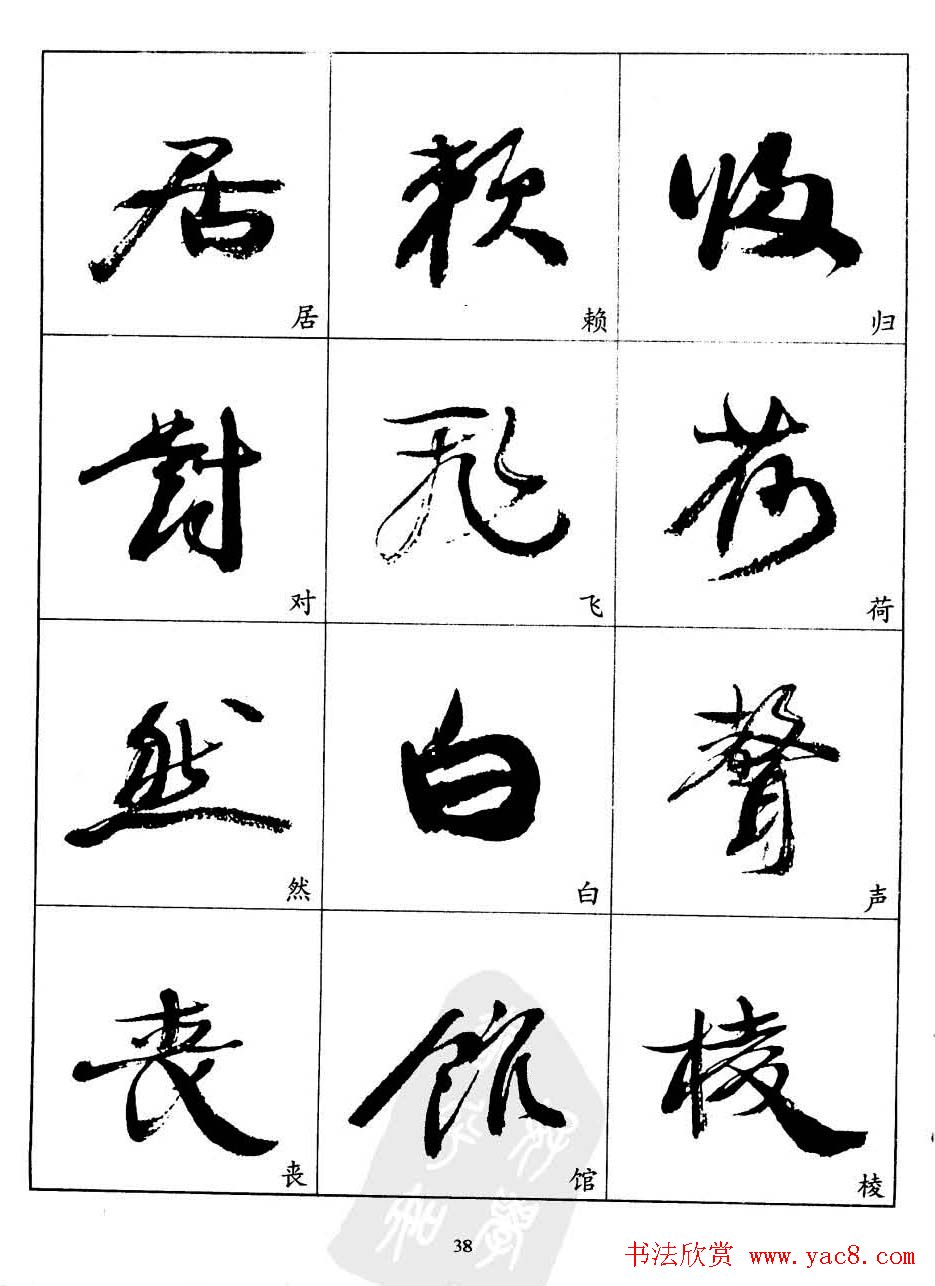 居 赖 归
居 赖 归
對 飛 荷
对 飞 荷
然 白 聲
然 白 声
喪 館 棱
丧 馆 棱
38
书法欣赏 www.yac8.com